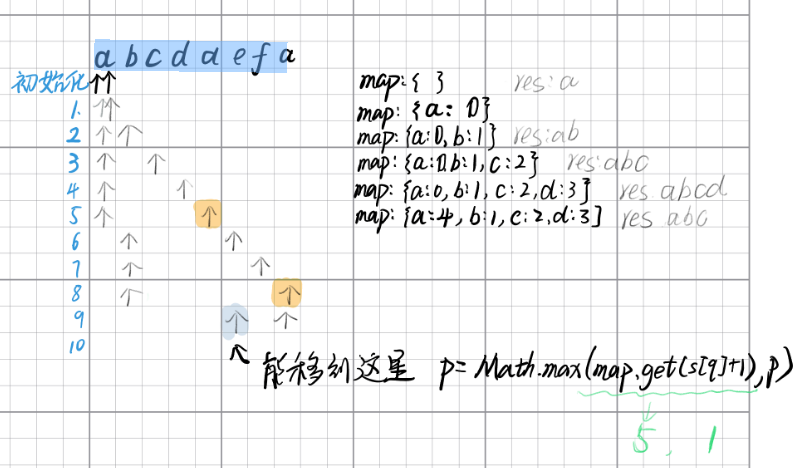 a b c d a e f a
初始化 map:{ } res:a
1. map:{a:0}
2 map:{a:0,b:1} res:ab
3 map:{a:0,b:1,c:2} res:abc
4 map:{a:0,b:1,c:2,d:3} res abcd
5 map:{a:4,b:1,c:2,d:3} res abc
6
7
8
9
10
能移到这里 p=Math.max(map.get(s[q]+1),p)
5, 1